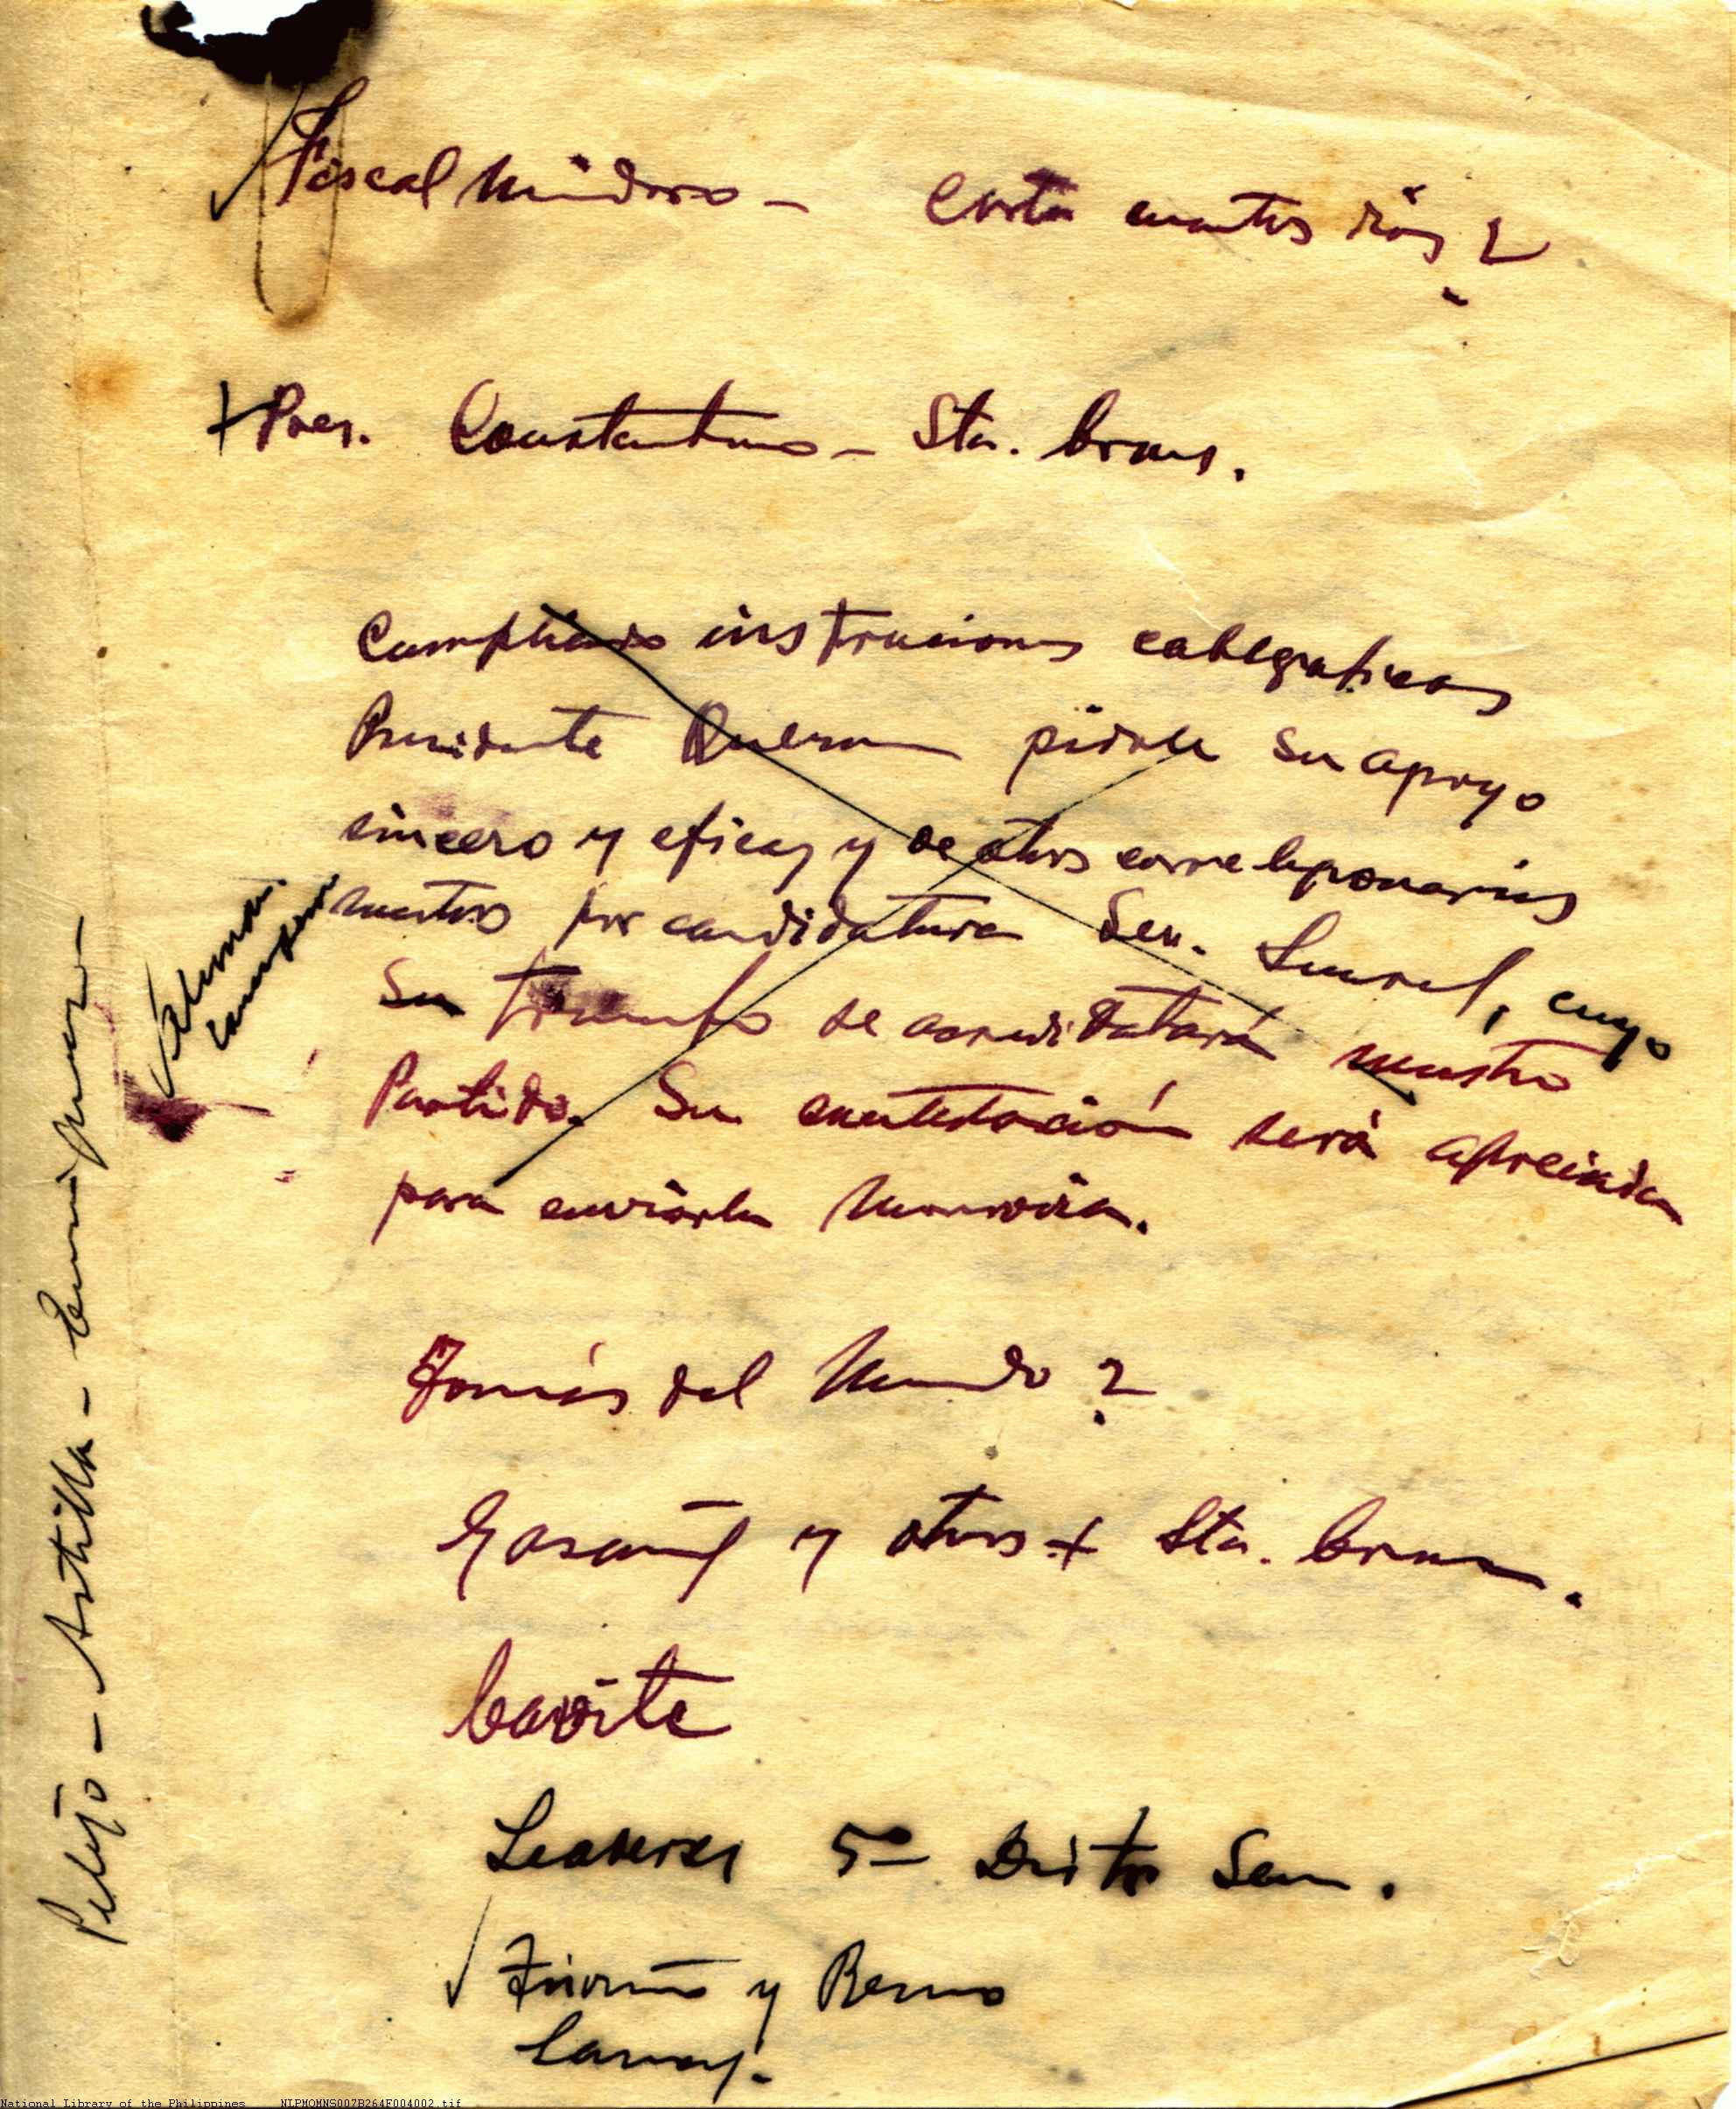 Fiscal Mindoro - Carta cuantos días?
Pres. Constantino - Sta. Cruz.
Cumpliendo instrucciones cablegraficas
Presidente Quezon pidole su apoyo
sincero y eficaz y de otros correligionarios
nuestros por candidatura Sen. Laurel, cuyo
su triunfo se acreditará nuestro
Partido. Su contestación será apreciada
para enviarla
Tomás del Mundo?
y otros + Sta. Cruz.
Cavite
Leaderes 5º Distr Sen.
y
Pelejo - Astilla -
National Library of the Philippines NLPMOMNS007B264F004002.tif